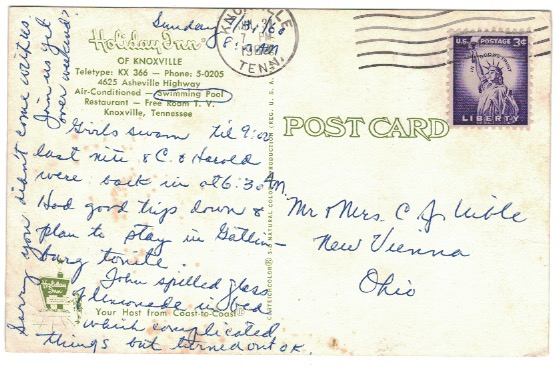 Sunday
Holiday Inn
OF KNOXVILLE
Teletype: KX 366 — Phone: 5-0205
4625 Asheville Highway
Air-Conditioned — Swimming Pool
Restaurant — Free Room T. V.
Knoxville, Tennessee
Girls swam til 9:00
last nite & C. & Harold
were back in at 6:30 AM.
Had good trips down &
plan to stay in Gatlin-
burg tonite.
John spilled glass
of lemonade in bed
which complicated
things but turned out OK.
Sorry you didn't come with us.
Join us yet
over weekend?
Holiday Inn
Your Host from Coast-to-Coast®
KNOXVILLE
TENN.
POST CARD
U.S. POSTAGE 3¢
IN GOD WE TRUST
LIBERTY
Mr & Mrs. C J Uible
New Vienna
Ohio